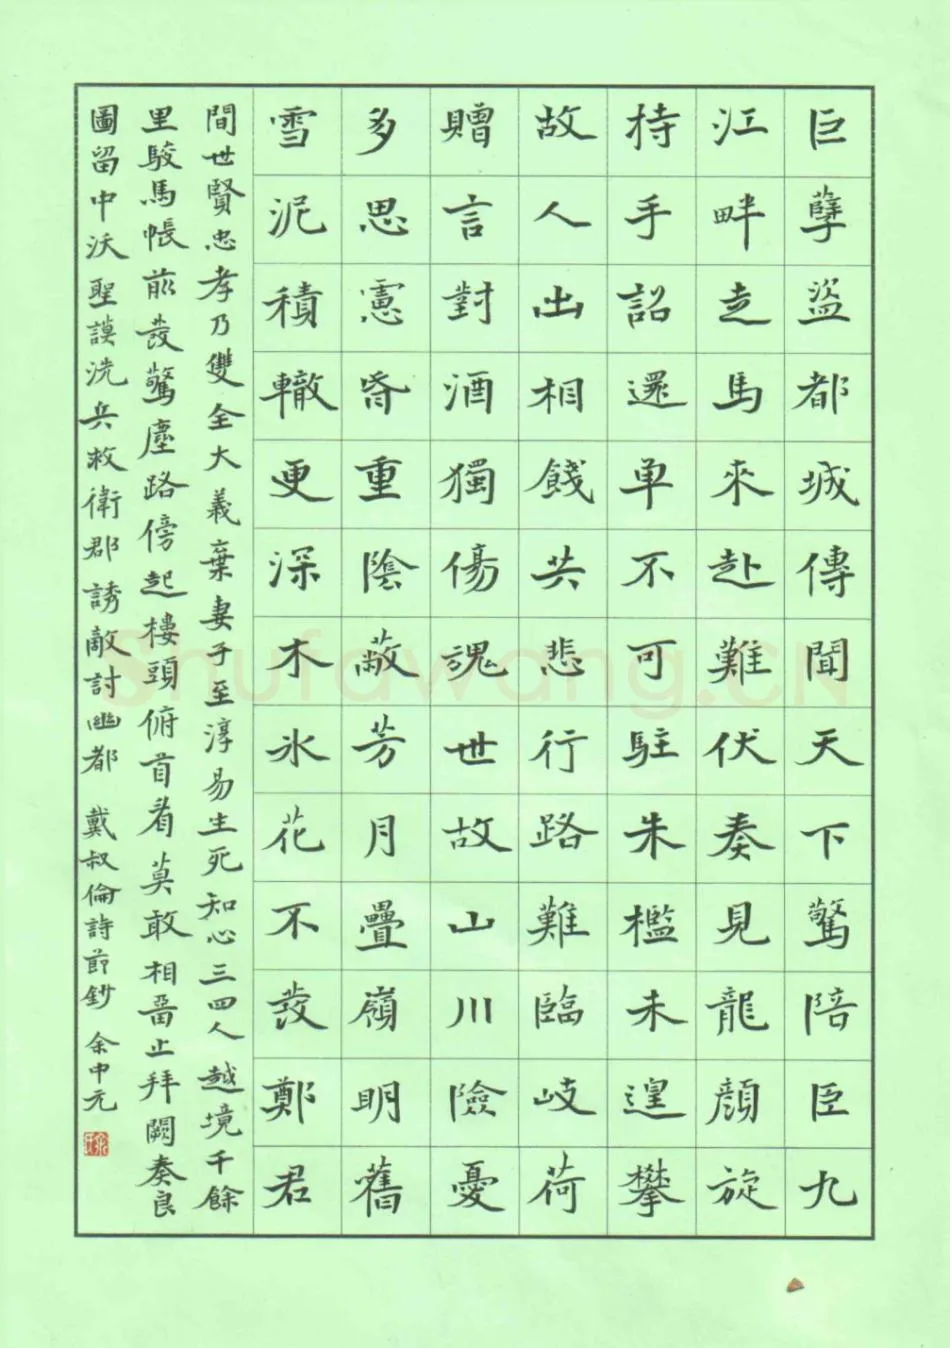 巨孽盜都城傳聞天下驚陪臣九
江畔走馬來赴難伏奏見龍顏旋
持手詔還單車不可駐朱檻未遑攀
故人出相餞共悲行路難臨岐荷
贈言對酒獨傷魂世故山川險憂
多思慮昏重陰蔽芳月疊嶺明舊
雪泥積轍更深木冰花不發鄭君
間世賢忠孝乃雙全大義棄妻子至淳易生死知心三四人越境千餘
里駿馬帳前發驚塵路傍起樓頭俯首看莫敢相留止拜闕奏良
圖留中沃聖謨洗兵救衛郡誘敵討幽都 戴叔倫詩節鈔 余中元
Shufawang.CN